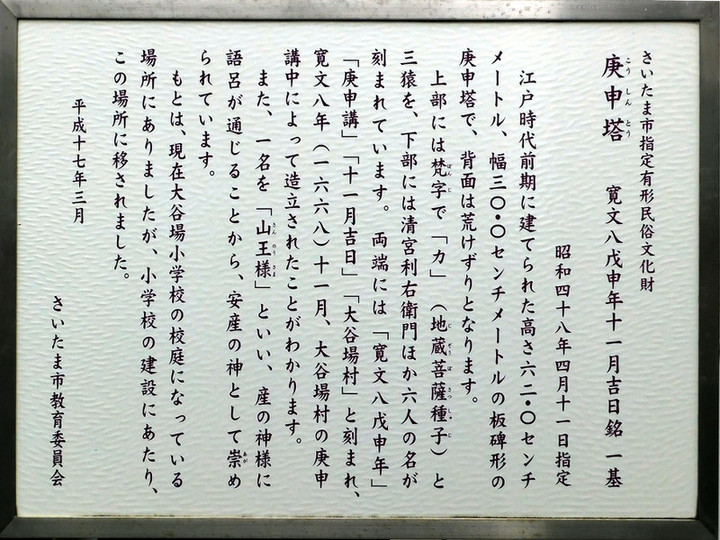 さいたま市指定有形民俗文化財
庚申塔　寛文八戊申年十一月吉日銘　一基
こうしんとう
昭和四十八年四月十一日指定
江戸時代前期に建てられた高さ六二・〇センチ
メートル、幅三〇・〇センチメートルの板碑形の
庚申塔で、背面は荒けずりとなります。
上部には梵字で「カ」（地蔵菩薩種子）と
ぼんじ　じぞうぼさつしゅじ
三猿を、下部には清宮利右衛門ほか六人の名が
刻まれています。両端には「寛文八戊申年」
「庚申講」「十一月吉日」「大谷場村」と刻まれ、
寛文八年（一六六八）十一月、大谷場村の庚申
講中によって造立されたことがわかります。
また、一名を「山王様」といい、産の神様に
さんのうさま
語呂が通じることから、安産の神として崇め
あが
られています。
もとは、現在大谷場小学校の校庭になっている
場所にありましたが、小学校の建設にあたり、
この場所に移されました。
平成十七年三月
さいたま市教育委員会